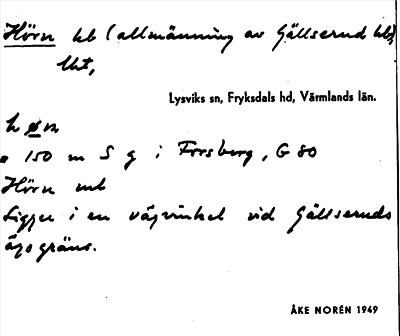 Hörn hb (allmänning av Gällserud hb)
Uht,
Lysviks sn, Fryksdals hd, Värmlands län.
hø̱n
150 m S g i Forsberg, G 80
Hörn mb
Ligger i en vägvinkel vid Gällseruds
ägogräns.
ÅKE NORÉN 1949